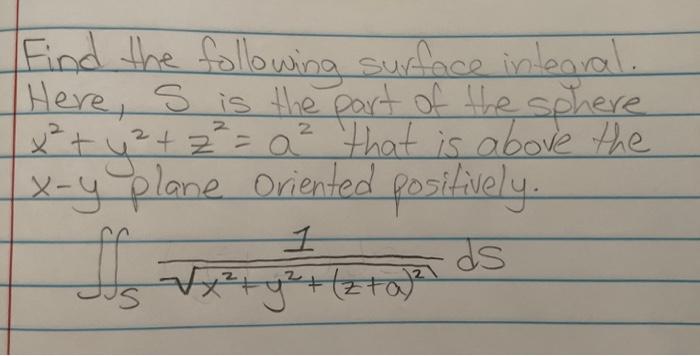 Find the following surface integral.
Here, S is the part of the sphere
x² + y² + z² = a² that is above the
x-y plane oriented positively.
∬_S 1/√(x² + y² + (z+a)²) dS